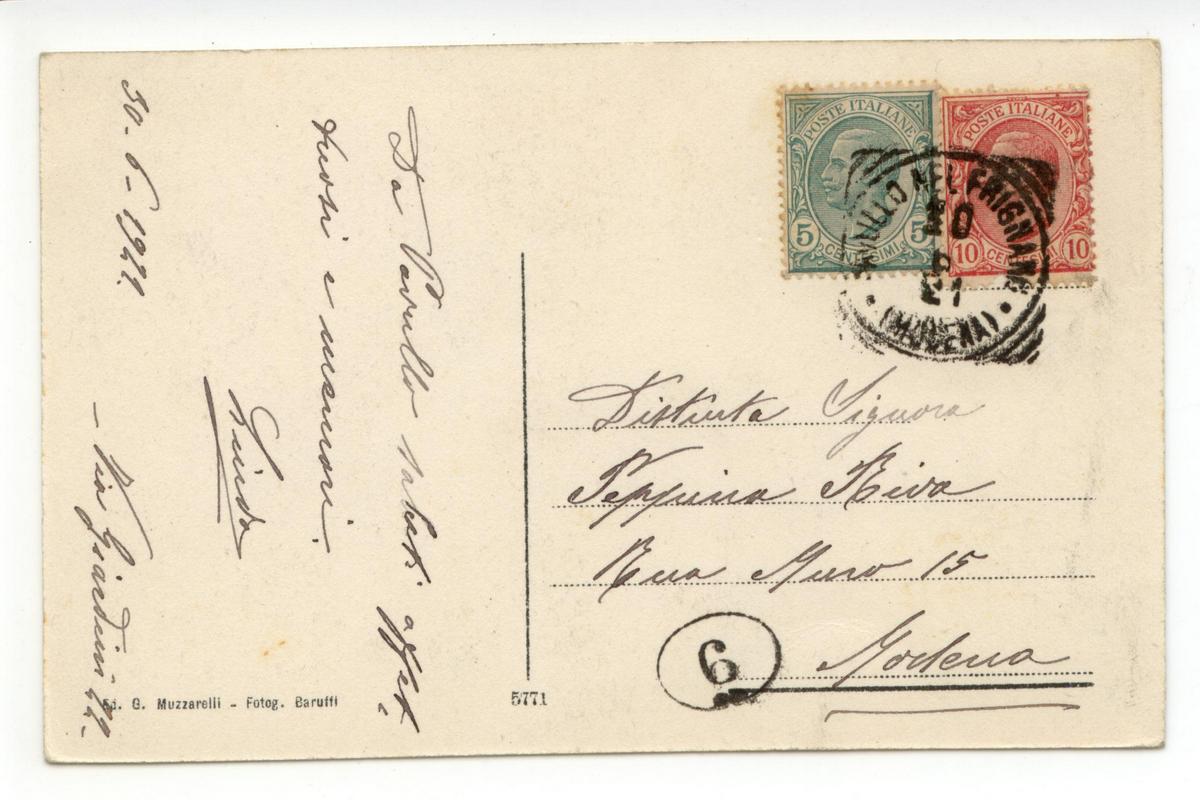 POSTE ITALIANE
5 CENTESIMI 5
POSTE ITALIANE
10 CENTESIMI 10
PAVULLO NEL FRIGNANO
(MODENA)
21
Da Pavullo saluti affet-
tuosi e memori.
Linda
30-6-1921.
- Via Giardini
Distinta Signora
Peppina Riva
Rua Muro 15
Modena
6
Ed. G. Muzzarelli - Fotog. Baruffi
5771